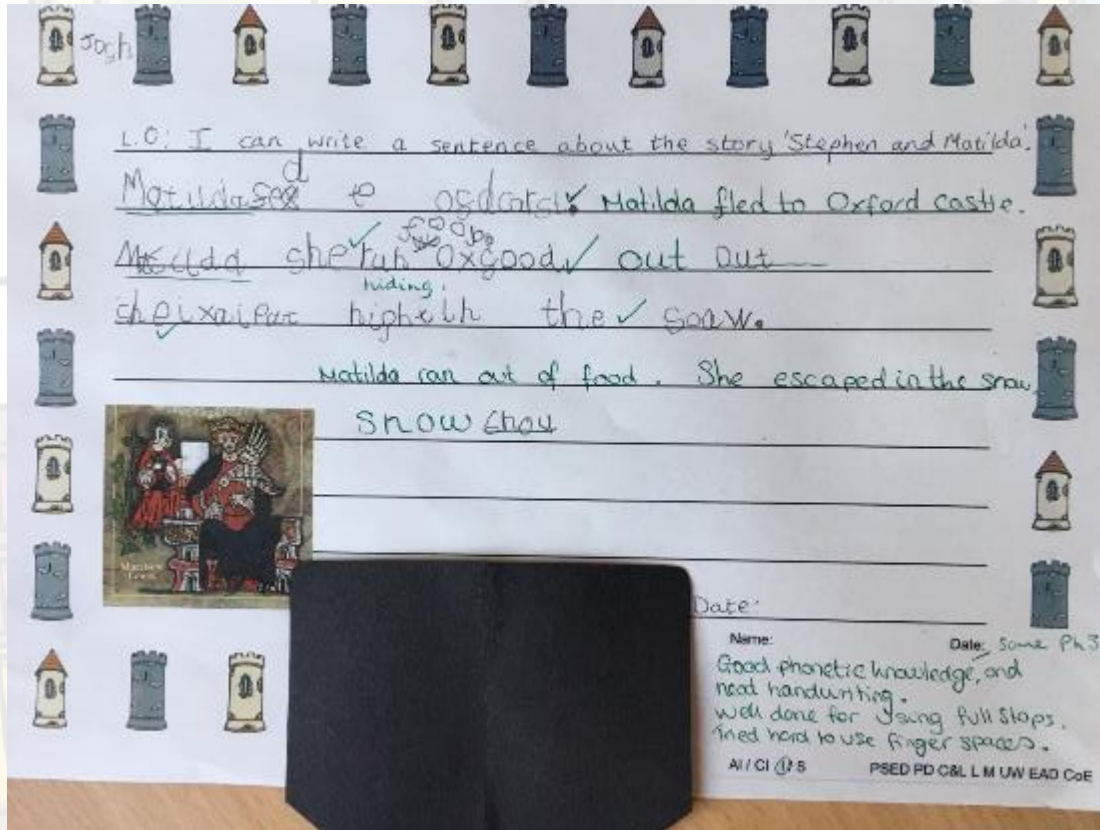 Josh
L.O: I can write a sentence about the story 'Stephen and Matilda'.
Matilda Matilda fled to Oxford castle.
she run Oxgood out out
hiding.
the soaw.
Matilda ran out of food. She escaped in the snow
snow
Date:
Name: Date: Some Ph3
Good phonetic knowledge, and
neat handwriting.
Well done for using full stops.
Tried hard to use finger spaces.
AI / CI S PSED PD C&L L M UW EAD CoE